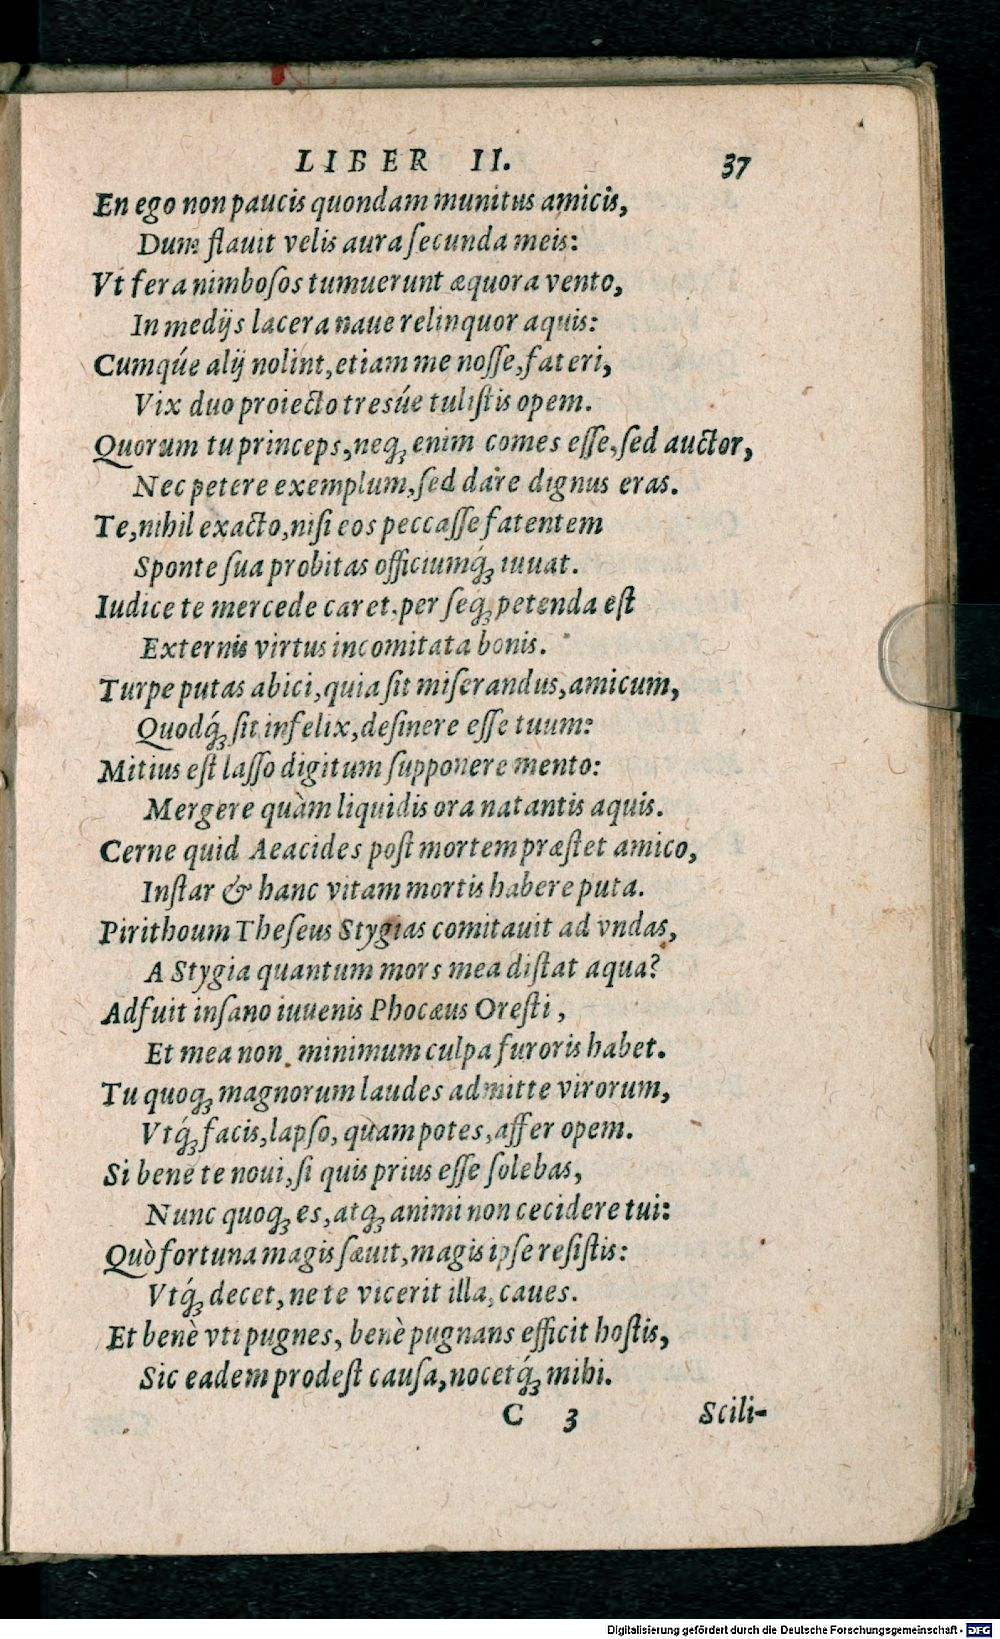 LIBER II. 37
En ego non paucis quondam munitus amicis,
Dum flauit velis aura ſecunda meis:
Vt fera nimboſos tumuerunt æquora vento,
In medijs lacera naue relinquor aquis:
Cumq́ue alij nolint, etiam me noſſe, fateri,
Vix duo proiecto tresúe tuliſtis opem.
Quorum tu princeps, neqꝫ enim comes eſſe, ſed auctor,
Nec petere exemplum, ſed dare dignus eras.
Te, nihil exacto, niſi eos peccaſſe fatentem
Sponte ſua probitas officiumq́ꝫ iuuat.
Iudice te mercede caret, per ſeqꝫ petenda eſt
Externis virtus incomitata bonis.
Turpe putas abici, quia ſit miſerandus, amicum,
Quodq́ꝫ ſit infelix, deſinere eſſe tuum:
Mitius eſt laſſo digitum ſupponere mento:
Mergere quàm liquidis ora natantis aquis.
Cerne quid Aeacides poſt mortem præſtet amico,
Inſtar & hanc vitam mortis habere puta.
Pirithoum Theſeus Stygias comitauit ad vndas,
A Stygia quantum mors mea diſtat aqua?
Adfuit inſano iuuenis Phocæus Oreſti,
Et mea non minimum culpa furoris habet.
Tu quoqꝫ magnorum laudes admitte virorum,
Vtq́ꝫ facis, lapſo, quàm potes, affer opem.
Si bene te noui, ſi quis prius eſſe ſolebas,
Nunc quoqꝫ es, atqꝫ animi non cecidere tui:
Quò fortuna magis ſæuit, magis ipſe reſiſtis:
Vtq́ꝫ decet, ne te vicerit illa, caues.
Et benè vti pugnes, benè pugnans efficit hoſtis,
Sic eadem prodeſt cauſa, nocetq́ꝫ mihi.
C 3 Scili-
Digitalisierung gefördert durch die Deutsche Forschungsgemeinschaft - DFG